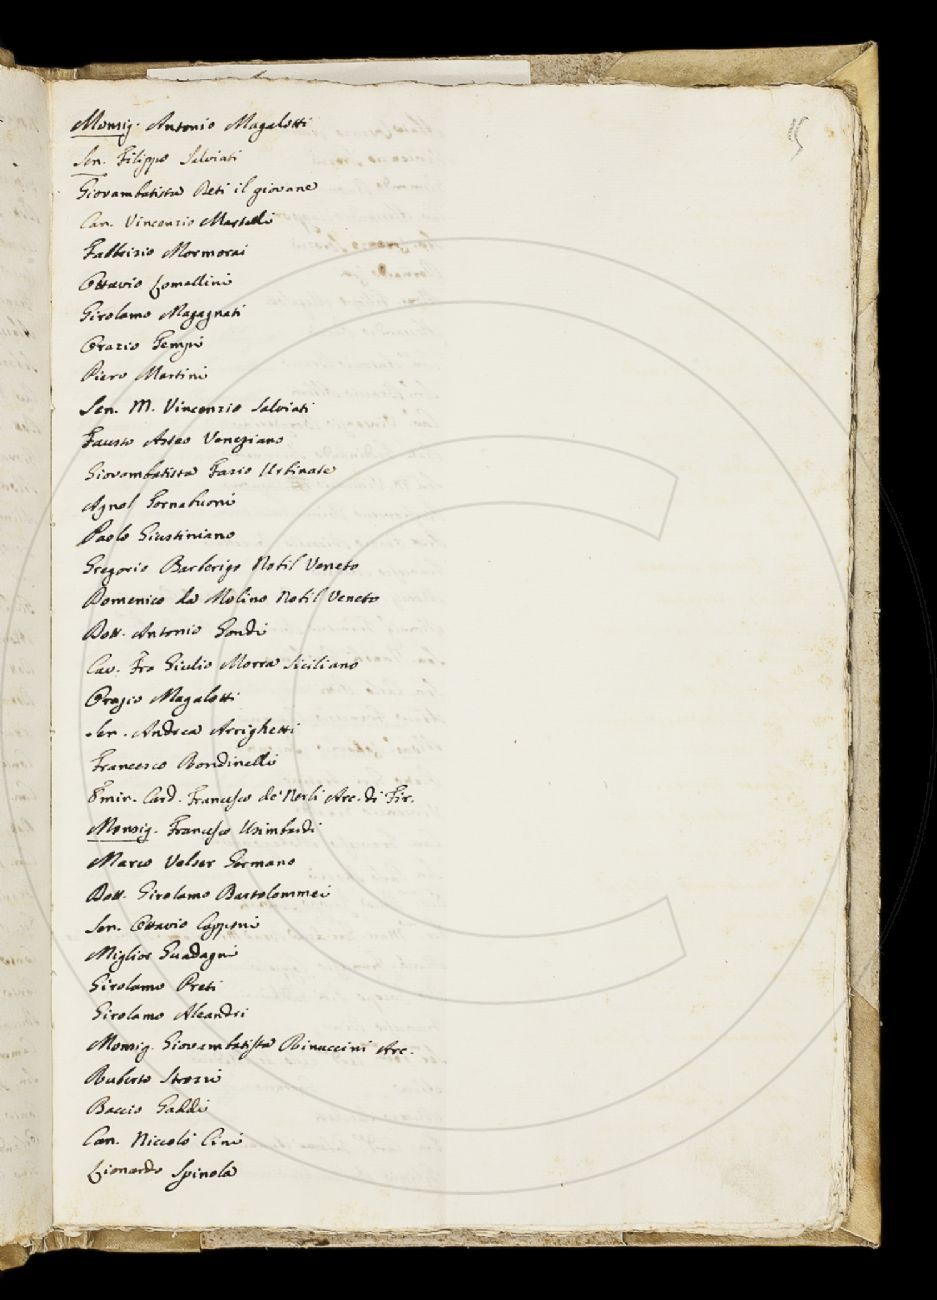 15
Monsig. Antonio Magalotti
Sen. Filippo Salviati
Giovambatista Deti il giovane
Can. Vincenzio Martelli
Fabbrizio Mormorai
Ottavio Lomellini
Girolamo Magagnati
Orazio Tempi
Piero Martini
Sen. M. Vincenzio Salviati
Fausto Veneziano
Giovambatista Fazio Urbinate
Agnol Tornabuoni
Paolo Giustiniano
Gregorio Barberigo Nobil Veneto
Domenico da Molino Nobil Veneto
Dott. Antonio Gondi
Cav. Fra Giulio Morra Siciliano
Orazio Magalotti
Sen. Andrea Arrighetti
Francesco Rondinelli
Emin. Card. Francesco de' Nerli Arc. di Fir.
Monsig. Francesco Usimbardi
Marco Velser Germano
Dott. Girolamo Bartolommei
Sen. Ottavio Capponi
Miglior Guadagni
Girolamo Preti
Girolamo Aleandri
Monsig. Giovambatista Rinuccini Arc.
Ruberto Strozzi
Baccio Gaddi
Can. Niccolò Cini
Lionardo Spinola